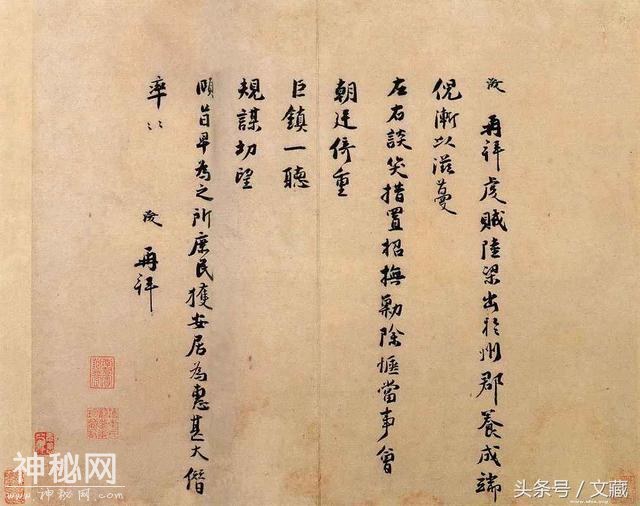 浚再拜虔賊陸梁出於州郡養成端
倪漸以滋蔓
左右談笑措置招撫勦除愜當事會
朝廷倚重
巨鎮一聽
規謀切望
頤旨早為之所庶民獲安居為惠甚大僭
率〻 浚 再拜
神秘网
头条号/文藏